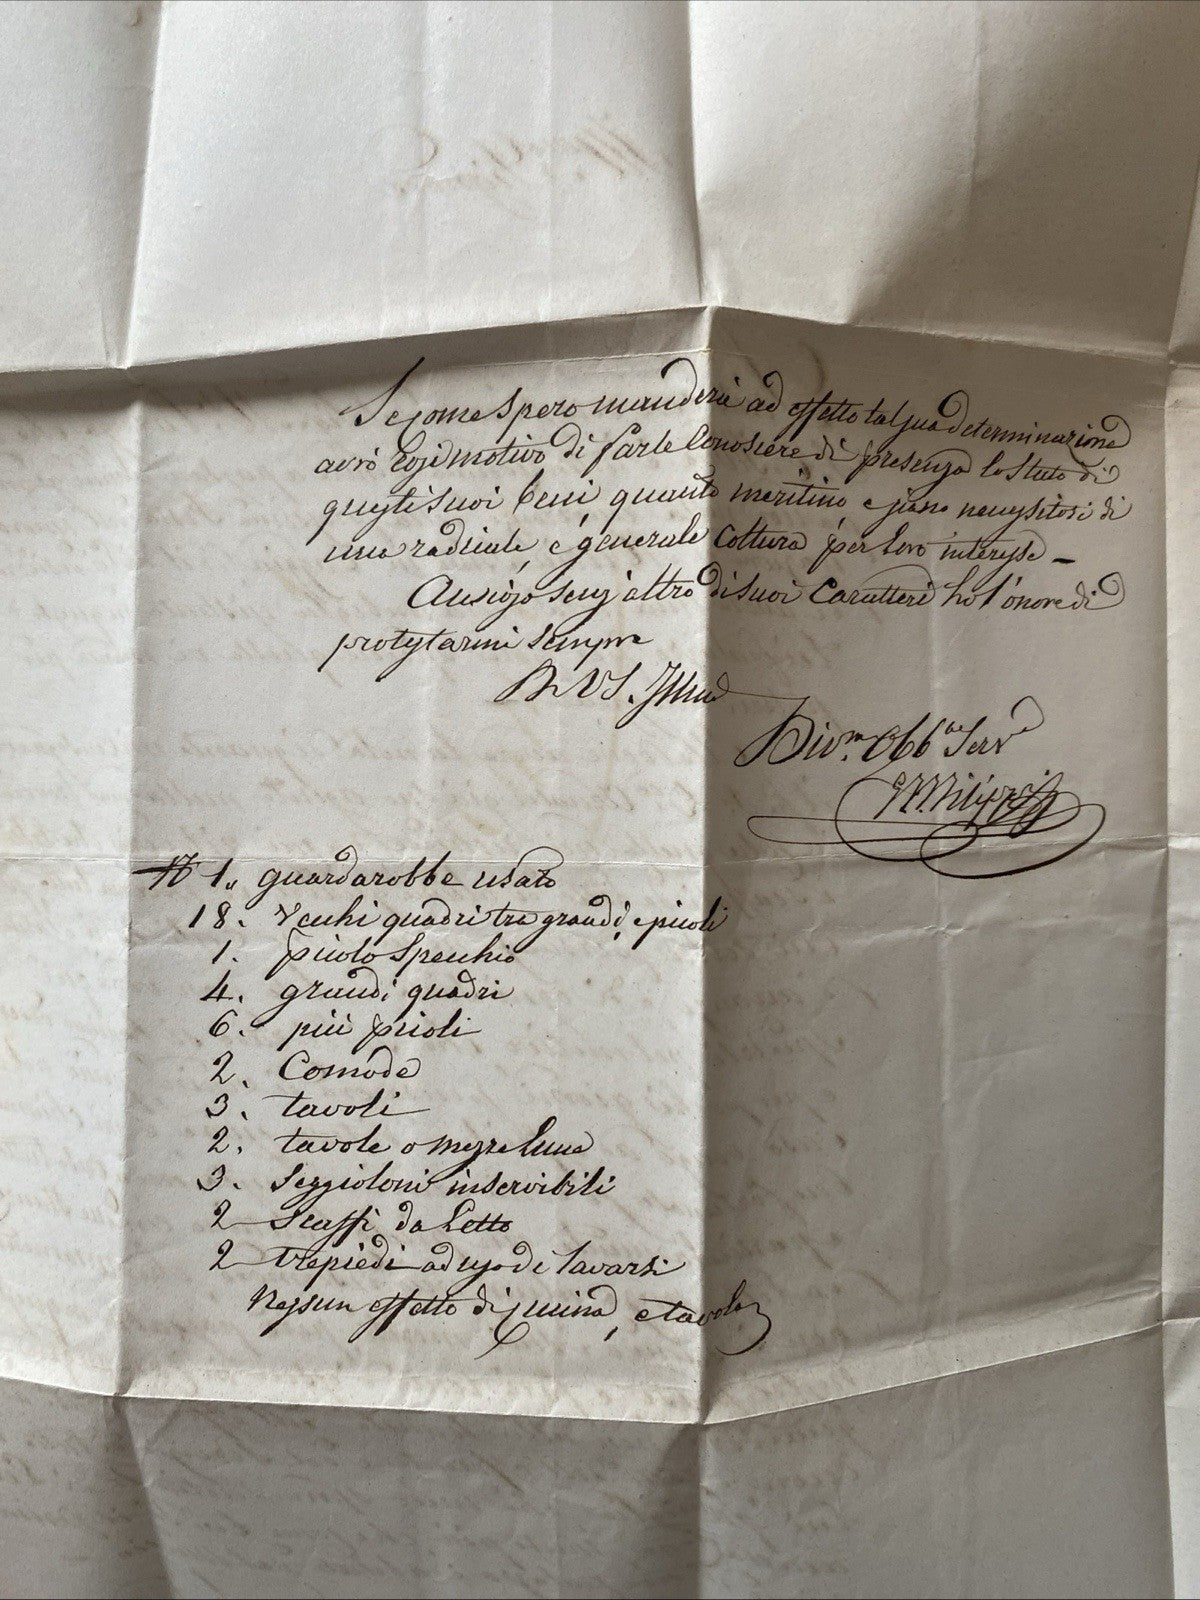 Se come spero manderà ad effetto tal sua determinazione
avrò così motivo di farle conoscere di presenza lo stato di
questi suoi beni, quanto meritino e siano necessitosi di
una radicale, e generale coltura per loro interesse –
Ansioso senz'altro di suoi caratteri ho l'onore di
protestarmi sempre
Di VS. Illma
Divmo Obbmo Serve
N 1. guardarobbe usato
18. Vecchi quadri tra grandi, e picoli
1. picolo specchio
4. grandi quadri
6. più picoli
2. Comode
3. tavoli
2. tavole o mezze lune
3. Seggioloni inservibili
2 Scaffi da Letto
2 trepiedi ad uso di lavarsi
Nessun effetto di cucina, e tavola